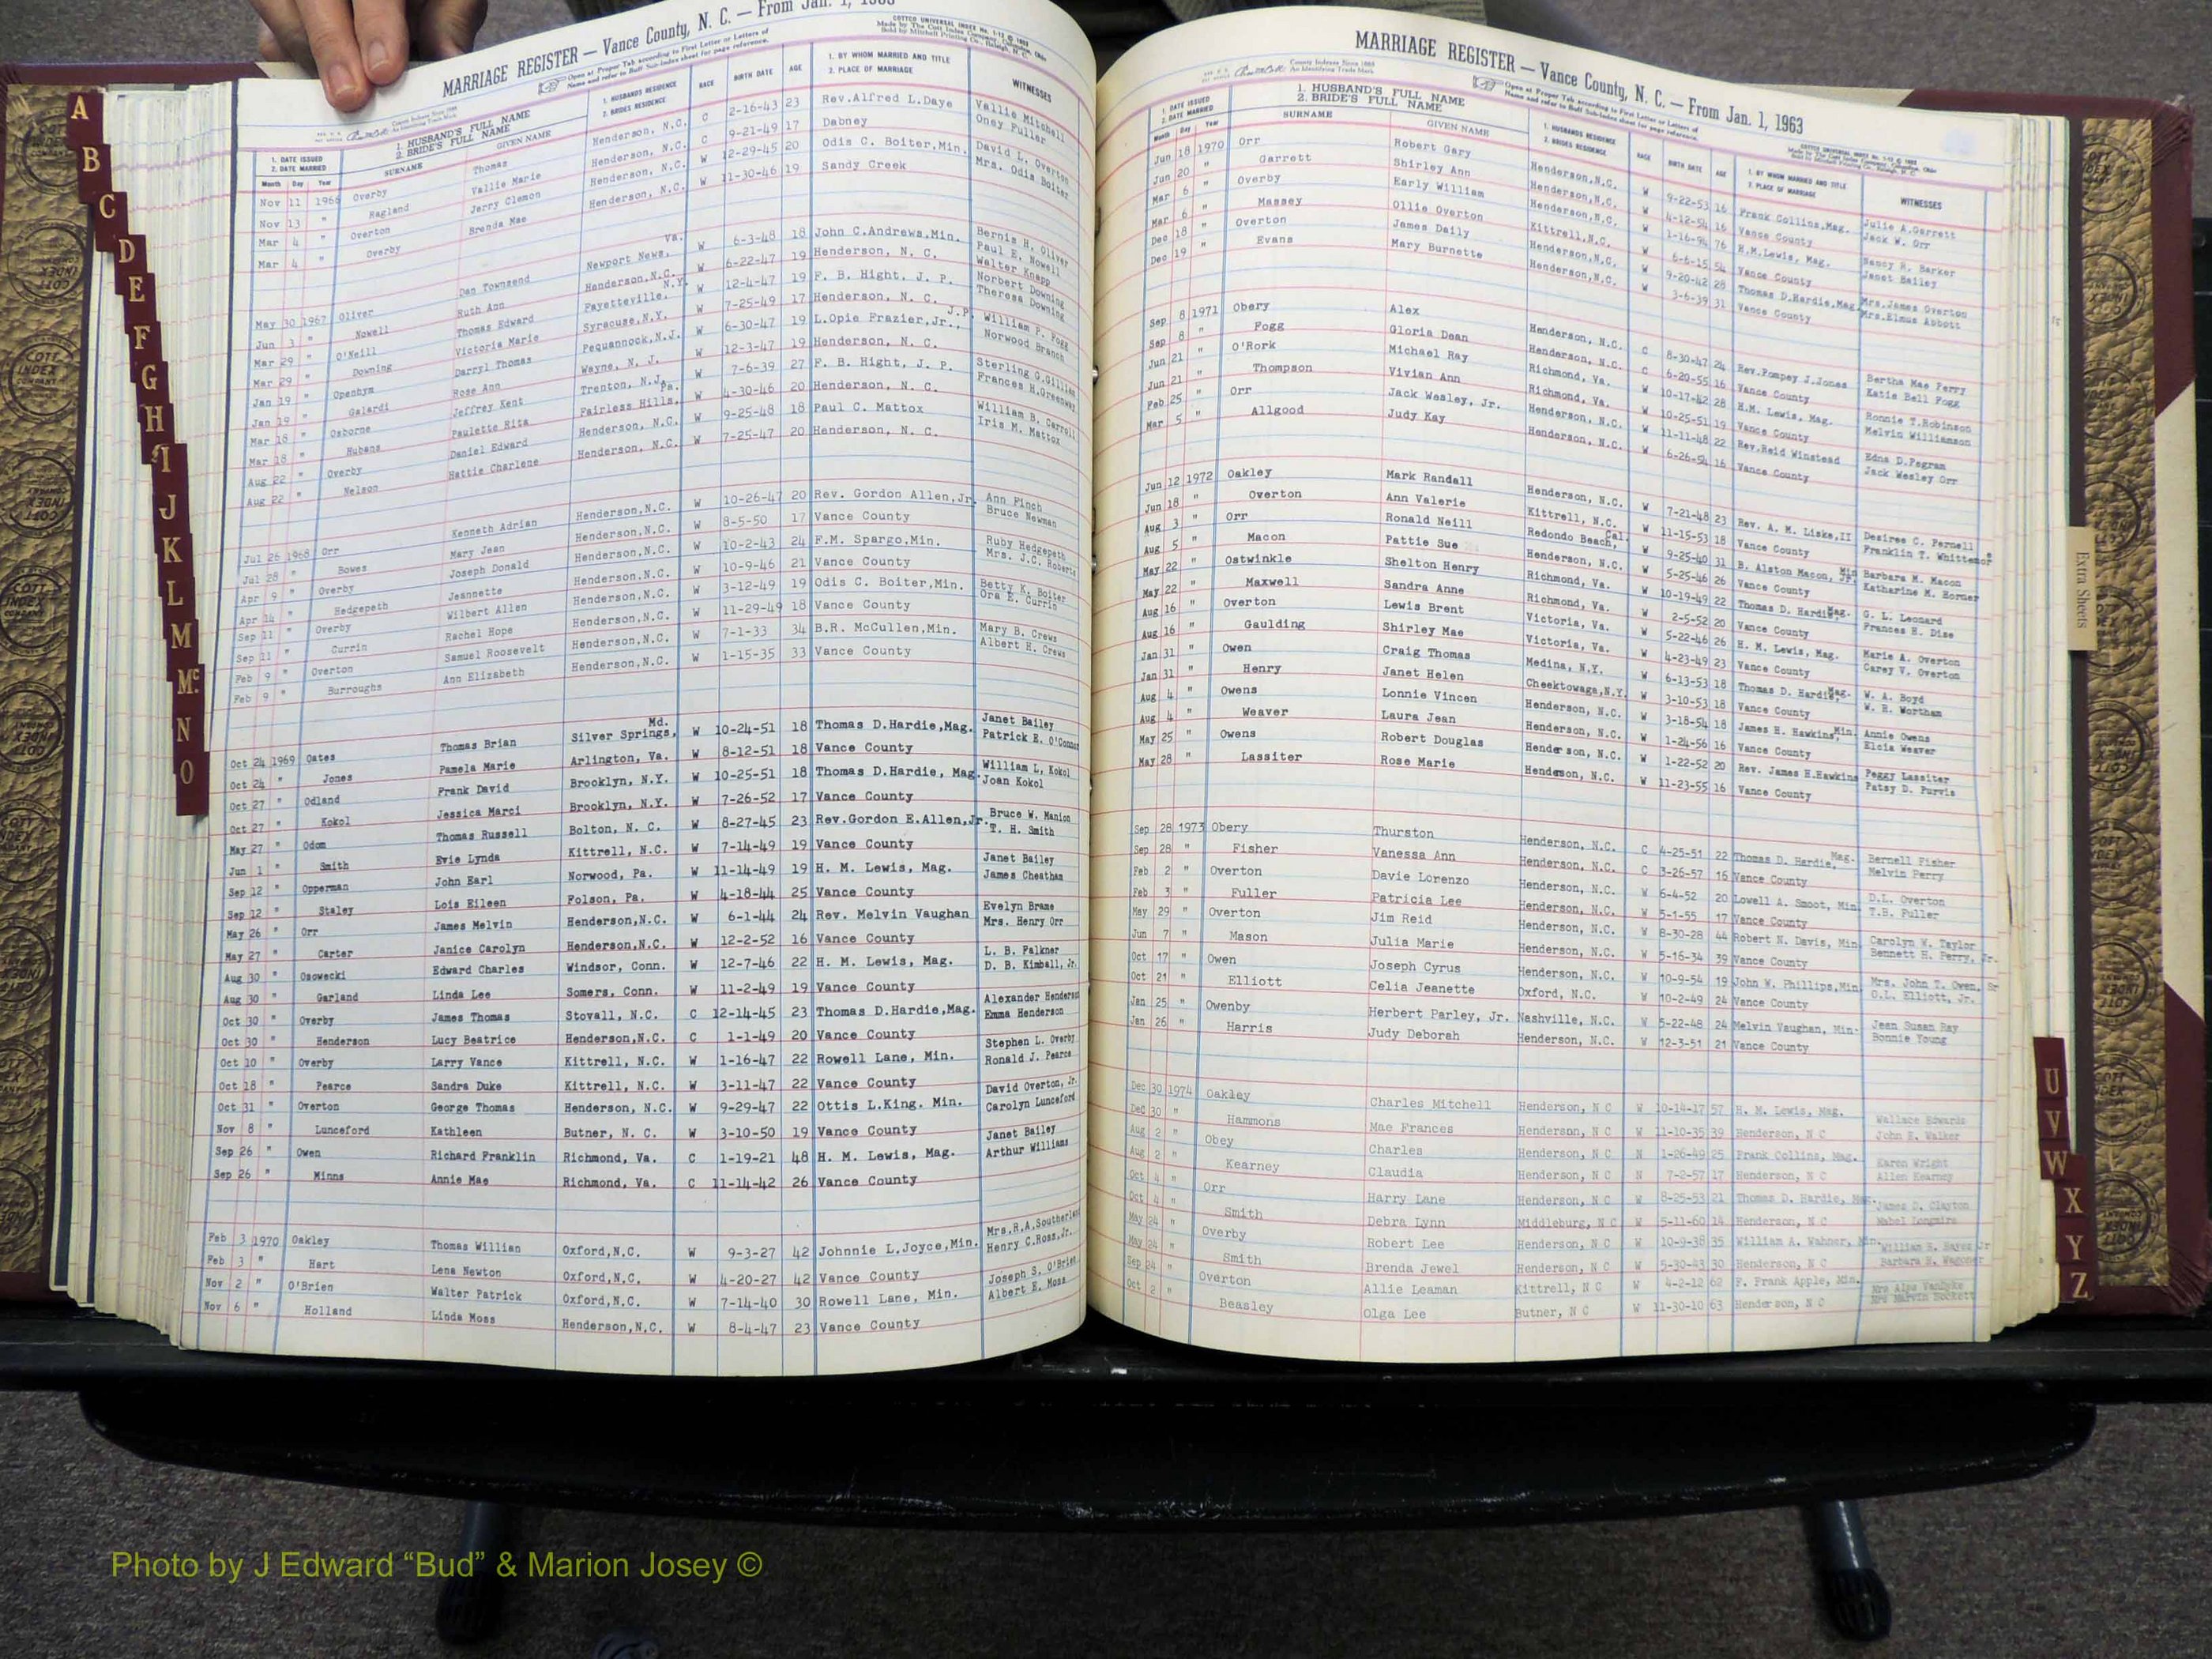 MARRIAGE REGISTER — Vance County, N. C. — From Jan. 1,
COTTCO UNIVERSAL INDEX No. 1-12 © 1962
Open at Proper Tab according to First Letter or Letters of
Name and refer to Buff Sub-Index sheet for page reference.
1. DATE ISSUED 2. DATE MARRIED Month Day Year
1. HUSBAND'S FULL NAME 2. BRIDE'S FULL NAME SURNAME GIVEN NAME
1. HUSBANDS RESIDENCE 2. BRIDES RESIDENCE
RACE BIRTH DATE AGE
1. BY WHOM MARRIED AND TITLE 2. PLACE OF MARRIAGE
WITNESSES
Nov 11 1966 Overby Thomas Henderson, N.C. C 2-16-43 23 Rev.Alfred L.Daye Vallie Mitchell
Nov 13 " Hagland Vallie Marie Henderson, N.C. C 9-21-49 17 Dabney Oney Fuller
Mar 4 " Overton Jerry Clemon Henderson, N.C. W 12-29-45 20 Odis C. Boiter,Min. David L. Overton
Mar 4 " Overby Brenda Mae Henderson, N.C. W 11-30-46 19 Sandy Creek Mrs. Odis Boiter
May 30 1967 Oliver Dan Townsend Newport News, Va. W 6-3-48 18 John C.Andrews,Min. Bernis H. Oliver
Jun 3 " Nowell Ruth Ann Henderson,N.C. W 6-22-47 19 Henderson, N. C. Paul E. Nowell
Mar 29 " O'Neill Thomas Edward Fayetteville, N.Y. W 12-4-47 19 F. B. Hight, J. P. Walter Knapp
Mar 29 " Downing Victoria Marie Syracuse,N.Y. W 7-25-49 17 Henderson, N. C. Norbert Downing
Theresa Downing
Jan 19 " Openhym Darryl Thomas Pequannock,N.J. W 6-30-47 19 L.Opie Frazier,Jr., J.P. William P. Fogg
Jan 19 " Galardi Rose Ann Wayne, N. J. W 12-3-47 19 Henderson, N. C. Norwood Branch
Mar 18 " Osborne Jeffrey Kent Trenton, N.J. W 7-6-39 27 F. B. Hight, J. P. Sterling G.Gilliam
Mar 18 " Hubans Paulette Rita Fairless Hills, Pa. W 4-30-46 20 Henderson, N. C. Frances H.Greenway
Aug 22 " Overby Daniel Edward Henderson, N.C. W 9-25-48 18 Paul C. Mattox William B. Carroll
Aug 22 " Nelson Hattie Charlene Henderson, N.C. W 7-25-47 20 Henderson, N. C. Iris M. Mattox
Jul 26 1968 Orr Kenneth Adrian Henderson,N.C. W 10-26-47 20 Rev. Gordon Allen,Jr. Ann Finch
Jul 28 " Bowes Mary Jean Henderson,N.C. W 8-5-50 17 Vance County Bruce Newman
Apr 9 " Overby Joseph Donald Henderson,N.C. W 10-2-43 24 F.M. Spargo,Min. Ruby Hedgepeth
Apr 14 " Hedgepeth Jeannette Henderson,N.C. W 10-9-46 21 Vance County Mrs. J.C. Roberts
Sep 11 " Overby Wilbert Allen Henderson,N.C. W 3-12-49 19 Odis C. Boiter,Min. Betty K. Boiter
Sep 11 " Currin Rachel Hope Henderson,N.C. W 11-29-49 18 Vance County Ora E. Currin
Feb 9 " Overton Samuel Roosevelt Henderson,N.C. W 7-1-33 34 B.R. McCullen,Min. Mary B. Crews
Feb 9 " Burroughs Ann Elizabeth Henderson,N.C. W 1-15-35 33 Vance County Albert H. Crews
Oct 24 1969 Oates Thomas Brian Silver Springs, Md. W 10-24-51 18 Thomas D.Hardie,Mag. Janet Bailey
Oct 24 " Jones Pamela Marie Arlington, Va. W 8-12-51 18 Vance County Patrick E. O'Connor
Oct 27 " Odland Frank David Brooklyn, N.Y. W 10-25-51 18 Thomas D.Hardie, Mag. William L. Kokol
Oct 27 " Kokol Jessica Marci Brooklyn, N.Y. W 7-26-52 17 Vance County Joan Kokol
May 27 " Odom Thomas Russell Bolton, N. C. W 8-27-45 23 Rev.Gordon E.Allen,Jr. Bruce W. Manion
Jun 1 " Smith Evie Lynda Kittrell, N.C. W 7-14-49 19 Vance County T. H. Smith
Sep 12 " Opperman John Earl Norwood, Pa. W 11-14-49 19 H. M. Lewis, Mag. Janet Bailey
Sep 12 " Staley Lois Eileen Folson, Pa. W 4-18-44 25 Vance County James Cheatham
May 26 " Orr James Melvin Henderson,N.C. W 6-1-44 24 Rev. Melvin Vaughan Evelyn Brame
May 27 " Carter Janice Carolyn Henderson,N.C. W 12-2-52 16 Vance County Mrs. Henry Orr
Aug 30 " Osowecki Edward Charles Windsor, Conn. W 12-7-46 22 H. M. Lewis, Mag. L. B. Falkner
Aug 30 " Garland Linda Lee Somers, Conn. W 11-2-49 19 Vance County D. B. Kimball, Jr.
Oct 30 " Overby James Thomas Stovall, N.C. C 12-14-45 23 Thomas D.Hardie,Mag. Alexander Henderson
Oct 30 " Henderson Lucy Beatrice Henderson,N.C. C 1-1-49 20 Vance County Emma Henderson
Oct 10 " Overby Larry Vance Kittrell, N.C. W 1-16-47 22 Rowell Lane, Min. Stephen L. Overby
Oct 18 " Pearce Sandra Duke Kittrell, N.C. W 3-11-47 22 Vance County Ronald J. Pearce
Oct 31 " Overton George Thomas Henderson, N.C. W 9-29-47 22 Ottis L.King, Min. David Overton, Jr.
Nov 8 " Lunceford Kathleen Butner, N. C. W 3-10-50 19 Vance County Carolyn Lunceford
Sep 26 " Owen Richard Franklin Richmond, Va. C 1-19-21 48 H. M. Lewis, Mag. Janet Bailey
Sep 26 " Minns Annie Mae Richmond, Va. C 11-14-42 26 Vance County Arthur Williams
Feb 3 1970 Oakley Thomas Willian Oxford,N.C. W 9-3-27 42 Johnnie L.Joyce,Min. Mrs.R.A.Southerland
Feb 3 " Hart Lena Newton Oxford,N.C. W 4-20-27 42 Vance County Henry C.Ross,Jr.
Nov 2 " O'Brien Walter Patrick Oxford,N.C. W 7-14-40 30 Rowell Lane, Min. Joseph S. O'Brien
Nov 6 " Holland Linda Moss Henderson,N.C. W 8-4-47 23 Vance County Albert E. Moss
MARRIAGE REGISTER — Vance County, N. C. — From Jan. 1, 1963
Open at Proper Tab according to First Letter or Letters of
Name and refer to Buff Sub-Index sheet for page reference.
1. DATE ISSUED 2. DATE MARRIED Month Day Year
1. HUSBAND'S FULL NAME 2. BRIDE'S FULL NAME SURNAME GIVEN NAME
1. HUSBANDS RESIDENCE 2. BRIDES RESIDENCE
RACE BIRTH DATE AGE
1. BY WHOM MARRIED AND TITLE 2. PLACE OF MARRIAGE
WITNESSES
Jun 18 1970 Orr Robert Gary Henderson,N.C. W 9-22-53 16 Frank Collins,Mag. Julie A.Garrett
Jun 20 " Garrett Shirley Ann Henderson,N.C. W 4-12-54 16 Vance County Jack W. Orr
Mar 6 " Overby Early William Henderson,N.C. W 1-16-94 76 H.M.Lewis, Mag. Nancy R. Barker
Mar 6 " Massey Ollie Overton Kittrell,N.C. W 6-6-15 54 Vance County Janet Bailey
Dec 18 " Overton James Daily Henderson,N.C. W 9-20-42 28 Thomas D.Hardie,Mag. Mrs.James Overton
Dec 19 " Evans Mary Burnette Henderson,N.C. W 3-6-39 31 Vance County Mrs.Elmus Abbott
Sep 8 1971 Obery Alex Henderson, N.C. C 8-30-47 24 Rev.Pompey J.Jones Bertha Mae Perry
Sep 8 " Fogg Gloria Dean Henderson, N.C. C 6-20-55 16 Vance County Katie Bell Fogg
Jun 21 " O'Rork Michael Ray Richmond, Va. W 10-17-42 28 H.M. Lewis, Mag. Ronnie T.Robinson
Jun 21 " Thompson Vivian Ann Richmond, Va. W 10-25-51 19 Vance County Melvin Williamson
Feb 25 " Orr Jack Wesley, Jr. Henderson, N.C. W 11-11-48 22 Rev.Reid Winstead Edna D.Pegram
Mar 5 " Allgood Judy Kay Henderson, N.C. W 6-26-54 16 Vance County Jack Wesley Orr
Jun 12 1972 Oakley Mark Randall Henderson, N.C. W 7-21-48 23 Rev. A. M. Liske,II Desires C. Pernell
Jun 18 " Overton Ann Valerie Kittrell, N.C. W 11-15-53 18 Vance County Franklin T. Whittemore
Aug 3 " Orr Ronald Neill Redondo Beach, Cal. W 9-25-40 31 B. Alston Macon, Jr. Min. Barbara M. Macon
Aug 5 " Macon Pattie Sue Henderson, N.C. W 5-25-46 26 Vance County Katharine M. Horner
May 22 " Ostwinkle Shelton Henry Richmond, Va. W 10-19-49 22 Thomas D. Hardie, Mag. G. L. Leonard
May 22 " Maxwell Sandra Anne Richmond, Va. W 2-5-52 20 Vance County Frances H. Dise
Aug 16 " Overton Lewis Brent Victoria, Va. W 5-22-46 26 H. M. Lewis, Mag. Marie A. Overton
Aug 16 " Gaulding Shirley Mae Victoria, Va. W 4-23-49 23 Vance County Carey V. Overton
Jan 31 " Owen Craig Thomas Medina, N.Y. W 6-13-53 18 Thomas D. Hardie, Mag. W. A. Boyd
Jan 31 " Henry Janet Helen Cheektowaga,N.Y. W 3-10-53 18 Vance County W. R. Wortham
Aug 4 " Owens Lonnie Vincen Henderson, N.C. W 3-18-54 18 James H. Hawkins, Min. Annie Owens
Aug 4 " Weaver Laura Jean Henderson, N.C. W 1-24-56 16 Vance County Elcia Weaver
May 25 " Owens Robert Douglas Henderson, N.C. W 1-22-52 20 Rev. James H.Hawkins Peggy Lassiter
May 28 " Lassiter Rose Marie Henderson, N.C. W 11-23-55 16 Vance County Patsy D. Purvis
Sep 28 1973 Obery Thurston Henderson, N.C. C 4-25-51 22 Thomas D. Hardie, Mag. Bernell Fisher
Sep 28 " Fisher Vanessa Ann Henderson, N.C. C 3-26-57 16 Vance County Melvin Perry
Feb 2 " Overton Davie Lorenzo Henderson, N.C. W 6-4-52 20 Lowell A. Smoot, Min. D.L. Overton
Feb 3 " Fuller Patricia Lee Henderson, N.C. W 5-1-55 17 Vance County T.B. Fuller
May 29 " Overton Jim Reid Henderson, N.C. W 8-30-28 44 Robert N. Davis, Min. Carolyn W. Taylor
Jun 7 " Mason Julia Marie Henderson, N.C. W 5-16-34 39 Vance County Bennett H. Perry, Jr.
Oct 17 " Owen Joseph Cyrus Henderson, N.C. W 10-9-54 19 John W. Phillips,Min. Mrs. John T. Owen, Sr
Oct 21 " Elliott Celia Jeanette Oxford, N.C. W 10-2-49 24 Vance County O.L. Elliott, Jr.
Jan 25 " Owenby Herbert Parley, Jr. Nashville, N.C. W 5-22-48 24 Melvin Vaughan, Min. Jean Susan Ray
Jan 26 " Harris Judy Deborah Henderson, N.C. W 12-3-51 21 Vance County Bonnie Young
Dec 30 1974 Oakley Charles Mitchell Henderson, N C W 10-14-17 57 H. M. Lewis, Mag. Wallace Edwards
Dec 30 " Hammons Mae Frances Henderson, N C W 11-10-35 39 Henderson, N C John E. Walker
Aug 2 " Obey Charles Henderson, N C N 1-26-49 25 Frank Collins, Mag. Karen Wright
Aug 2 " Kearney Claudia Henderson, N C N 7-2-57 17 Henderson, N C Allen Kearney
Oct 4 " Orr Harry Lane Henderson, N C W 8-25-53 21 Thomas D. Hardie, Mag. James D. Clayton
Oct 4 " Smith Debra Lynn Middleburg, N C W 5-11-60 14 Henderson, N C Mabel Longmire
May 24 " Overby Robert Lee Henderson, N C W 10-9-38 35 William A. Wahner, Min. William S. Hayes Jr
May 24 " Smith Brenda Jewel Henderson, N C W 5-30-43 30 Henderson, N C Barbara H. Wagoner
Sep 24 " Overton Allie Leaman Kittrell, N C W 4-2-12 62 F. Frank Apple, Min.
Oct 2 " Beasley Olga Lee Butner, N C W 11-30-10 63 Henderson, N C
A
B
C
D
E
F
G
H
I
J
K
L
M
Mc
N
O
Extra Sheets
U
V
W
X
Y
Z
Photo by J Edward “Bud” & Marion Josey ©